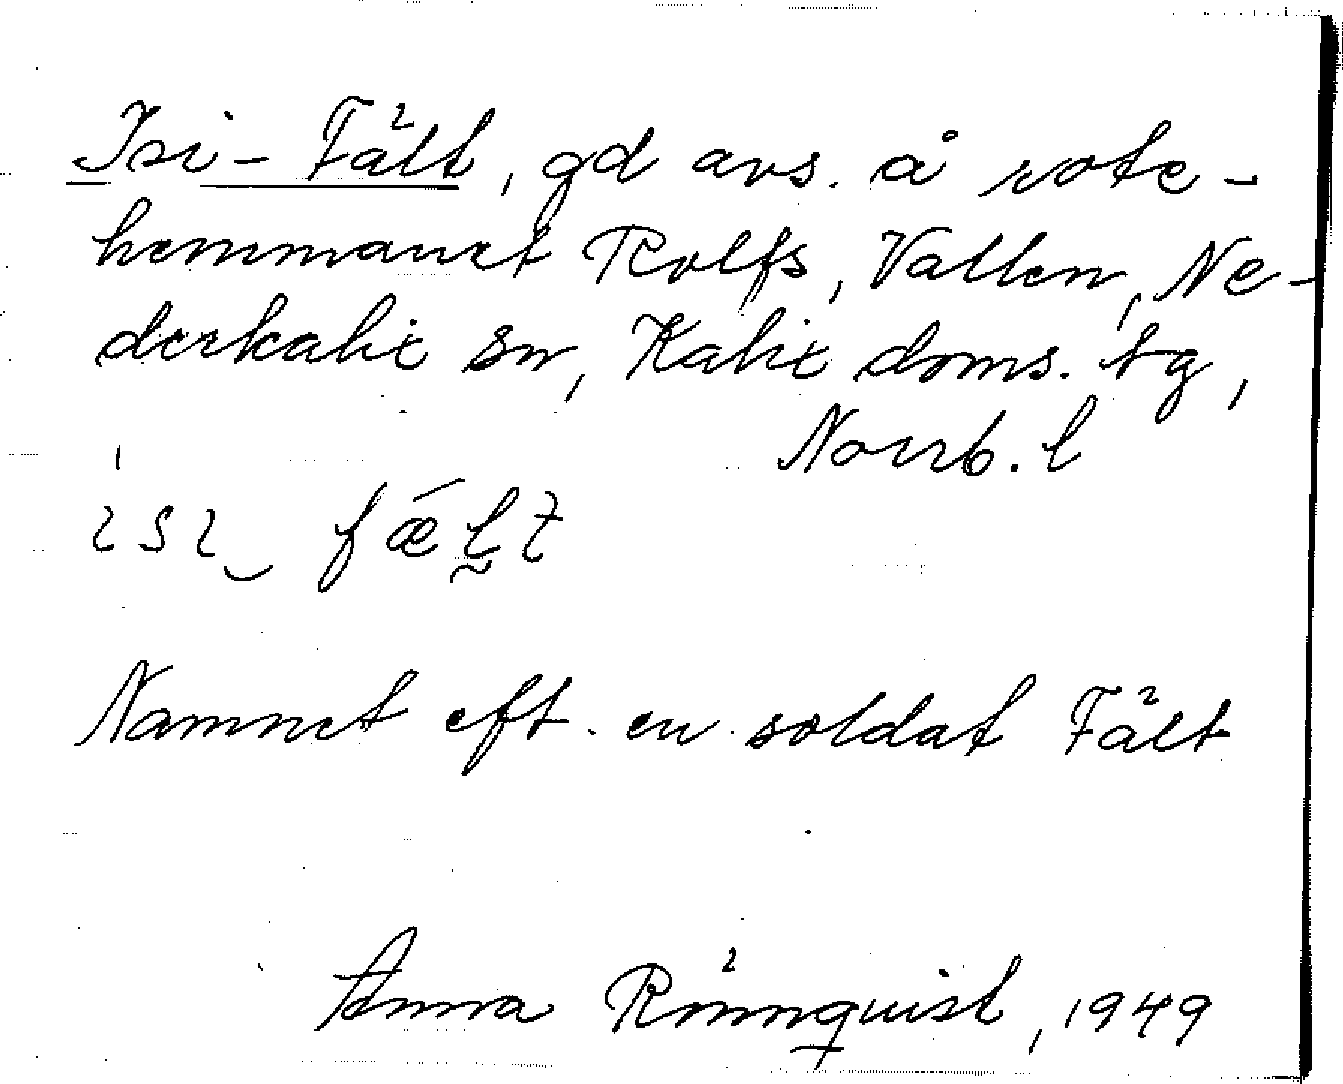 Isi-Fält, gd avs. å rote-
hemmanet Rolfs, Vallen, Ne-
derkalix sn, Kalix doms. tg,
Norrb. l
ısı‿ fǽlt
Namnet eft. en soldat Fält
Anna Rönnquist, 1949